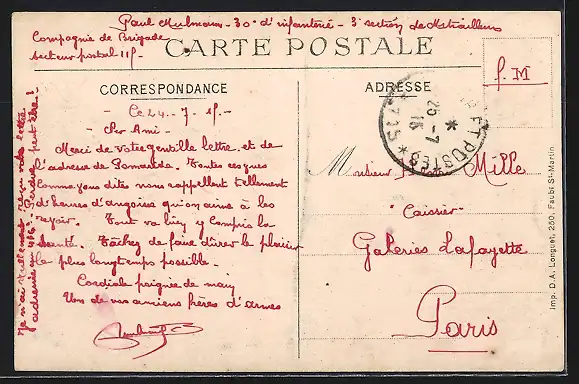 Paul Mulmann - 30e d'infanterie - 3e section de Mitrailleurs
Compagnie de Brigade
Secteur postal 115 -
CARTE POSTALE
F. M
CORRESPONDANCE
Ce 24 - 7 - 15 -
- Cher Ami -
Merci de votre gentille lettre et de
l'adresse de
Toutes ces
Comme vous dites nous rappellent tellement
d'heures d'angoisse qu'on aime à les
revoir. Tout va bien y compris la
Santé. Tâchez de faire durer le plaisir
le plus longtemps possible -
Cordiale poignée de main
Un de vos anciens frères d'armes
Je n'ai réellement reçu votre lettre
adressée au Perdue peut être!
ADRESSE
ET POSTES
25 - 7
15
Monsieur Mille
Caissier
Galeries Lafayette
Paris
Imp. D.A. Longuet, 250, Faubg St-Martin